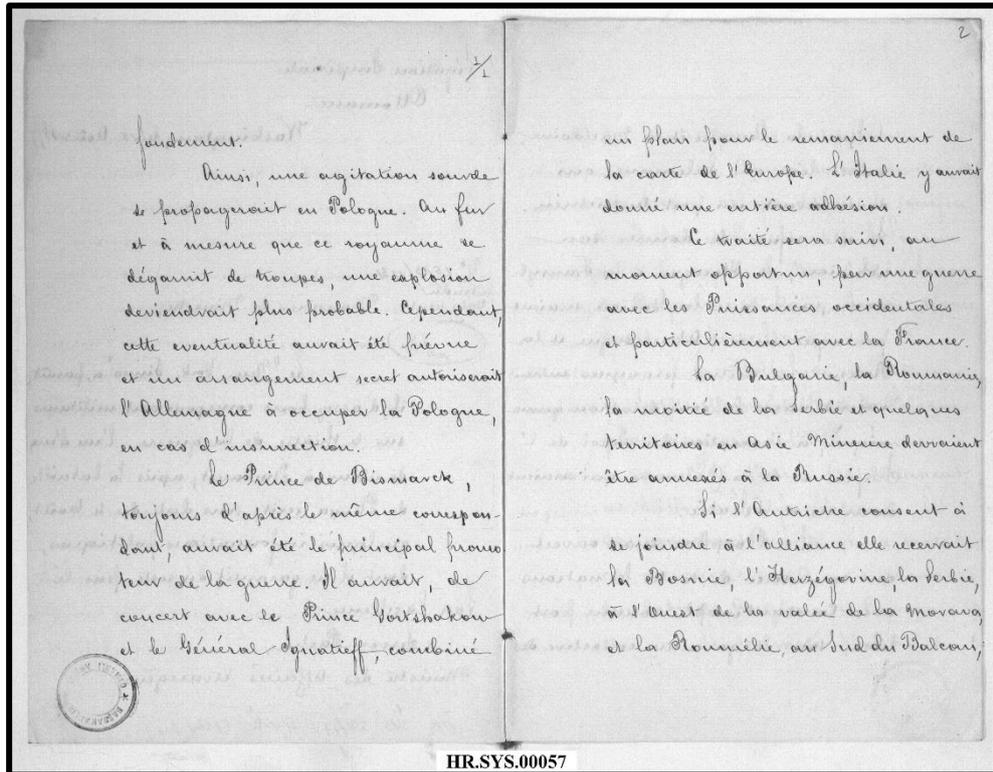 1/1
fondement.
Ainsi, une agitation sourde
se propagerait en Pologne. Au fur
et à mesure que ce royaume se
dégarnit de troupes, une explosion
deviendrait plus probable. Cependant,
cette eventualité aurait été prévue
et un arrangement secret autoriserait
l'Allemagne à occuper la Pologne,
en cas d'insurrection.
Le Prince de Bismarck,
toujours d'après le même correspon-
dant, aurait été le principal promo
teur de la guerre. Il aurait, de
concert avec le Prince Gortshakow
et le Général Ignatieff, combiné
2
un plan pour le remaniement de
la carte de l'Europe. L'Italie y aurait
donné une entière adhésion.
Ce traité sera suivi, au
moment opportun, par une guerre
avec les Puissances occidentales
et particulièrement avec la France.
La Bulgarie, la Roumanie,
la moitié de la Serbie et quelques
territoires en Asie Mineure devraient
être annexés à la Russie.
Si l'Autriche consent à
se joindre à l'alliance elle recevrait
la Bosnie, l'Herzégovine, la Serbie,
à l'Ouest de la valée de la Morava,
et la Roumélie, au Sud du Balcan,
HR.SYS.00057